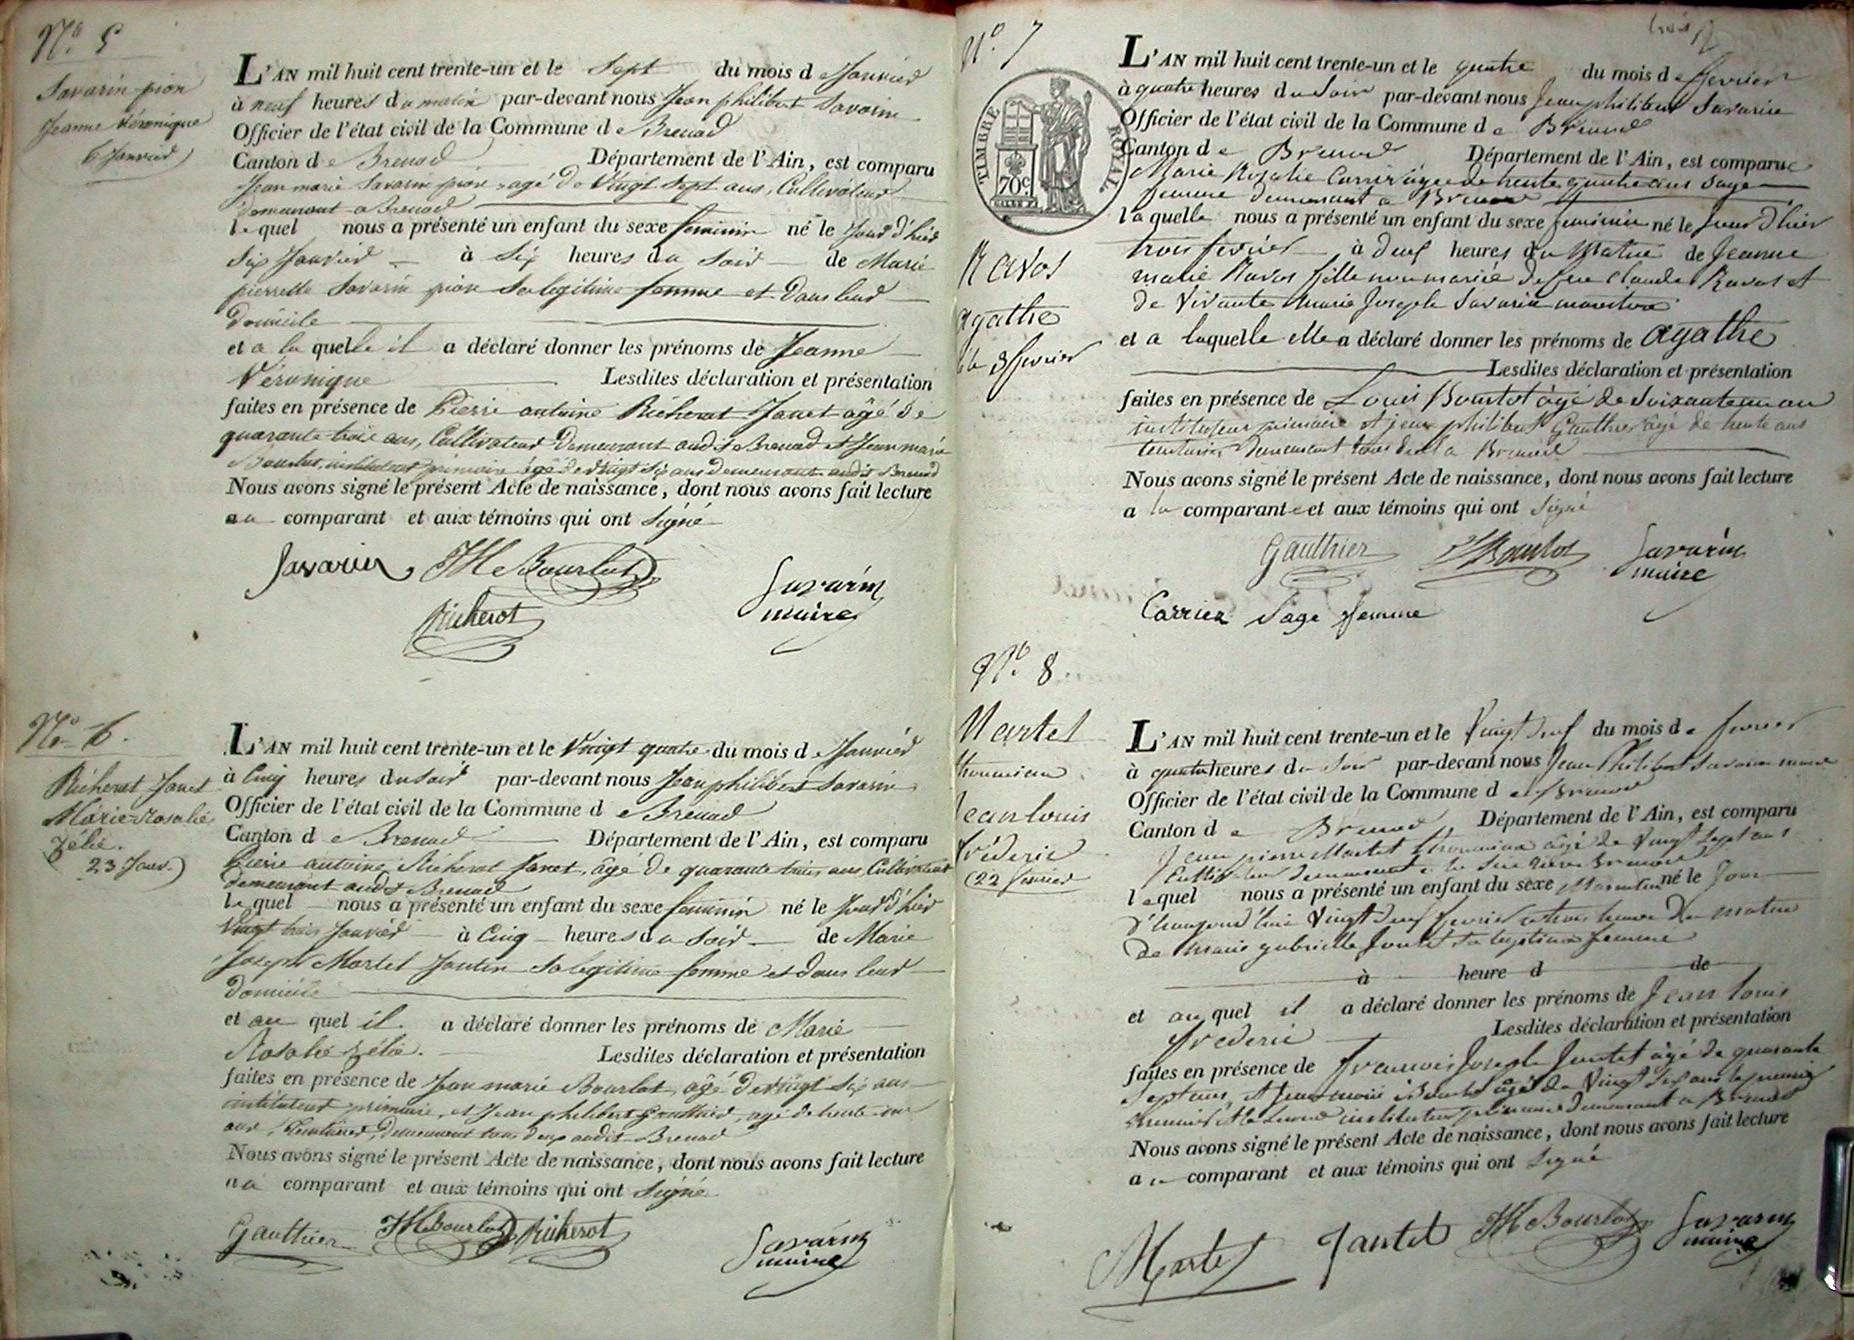 N.º 5
Savarin pion
Jeanne Véronique
6 Janvier
L'AN mil huit cent trente-un et le sept du mois de Janvier
à neuf heures du matin par-devant nous Jean philibert Savarin
Officier de l'état civil de la Commune de Brenod
Canton de Brenod Département de l'Ain, est comparu
Jean marie Savarin pion agé de Vingt sept ans, Cultivateur
demeurant a Brenod
lequel nous a présenté un enfant du sexe feminin né le Jour d'hier
Six Janvier à Six heures du Soir de Marie
pierrette Savarin pion Sa legitime femme et dans leur
domicile
et a la quelle il a déclaré donner les prénoms de Jeanne
Véronique Lesdites déclaration et présentation
faites en présence de Pierre antoine Richerot Janet âgé de
quarante trois ans, Cultivateur demeurant audit Brenod et Jean marie
Bourlot, instituteur primaire âgé de Vingt Six ans demeurant audit Brenod
Nous avons signé le présent Acte de naissance, dont nous avons fait lecture
au comparant et aux témoins qui ont Signé
Savarin JM Bourlot
Savarin
maire
Richerot
Nº 6.
Richerot Janet
Marie Rosalie
Zélie.
23 Janv.)
L'AN mil huit cent trente-un et le Vingt quatre du mois de Janvier
à Cinq heures du soir par-devant nous Jean philibert Savarin
Officier de l'état civil de la Commune de Brenod
Canton de Brenod Département de l'Ain, est comparu
Pierre antoine Richerot Janet, âgé de quarante trois ans, Cultivateur
demeurant audit Brenod
lequel nous a présenté un enfant du sexe feminin né le Jour d'hier
Vingt trois Janvier à Cinq heures du Soir de Marie
Joseph Martel Jantin Sa legitime femme et dans leur
domicile
et au quel il a déclaré donner les prénoms de Marie
Rosalie Zélie. Lesdites déclaration et présentation
faites en présence de Jean marie Bourlot, âgé de Vingt Six ans
instituteur primaire, et Jean philibert Gauthier, agé de trente
ans, demeurant tous deux audit Brenod
Nous avons signé le présent Acte de naissance, dont nous avons fait lecture
au comparant et aux témoins qui ont Signé
Gauthier JM Bourlot Richerot
Savarin
maire
N.º 7
TIMBRE ROYAL
70c
Ravos
agathe
le 3 fevrier
L'AN mil huit cent trente-un et le quatre du mois de fevrier
à quatre heures du Soir par-devant nous Jean philibert Savarin
Officier de l'état civil de la Commune de Brenod
Canton de Brenod Département de l'Ain, est comparue
Marie Rosalie Carrier âgée de trente quatre ans Sage
femme demeurant a Brenod
laquelle nous a présenté un enfant du sexe feminin né le Jour d'hier
trois fevrier à deux heures du Matin de Jeanne
marie Ravos fille non mariée de feu Claude Ravos et
de Vivante Marie Joseph Savarin
et a laquelle elle a déclaré donner les prénoms de agathe
Lesdites déclaration et présentation
faites en présence de Louis Bourlot âgé de Soixante un an
instituteur primaire et jean philibert Gauthier âgé de trente ans
demeurant tous deux a Brenod
Nous avons signé le présent Acte de naissance, dont nous avons fait lecture
a la comparante et aux témoins qui ont Signé
Gauthier Bourlot Savarin
maire
Carrier Sage femme
Nº 8.
Martel
Jean louis
fréderic
(22 fevrier
L'AN mil huit cent trente-un et le Vingt deux du mois de fevrier
à quatre heures du Soir par-devant nous Jean Philibert Savarin maire
Officier de l'état civil de la Commune de Brenod
Canton de Brenod Département de l'Ain, est comparu
Jean pierre Martel âgé de Vingt Sept ans
Cultivateur demeurant a Brenod
lequel nous a présenté un enfant du sexe Masculin né le Jour
d'haujourd'hui Vingt deux fevrier a trois heures du matin
de Marie gabrielle Jantet Sa legitime femme
à heure d de
et au quel il a déclaré donner les prénoms de Jean louis
frederic Lesdites déclaration et présentation
faites en présence de francois Joseph Jantet âgé de quarante
Sept ans, et Jean marie Bourlot âgé de Vingt Six ans le premier
et le second instituteur primaire demeurant a Brenod
Nous avons signé le présent Acte de naissance, dont nous avons fait lecture
au comparant et aux témoins qui ont Signé
Martel Jantet JM Bourlot Savarin
maire